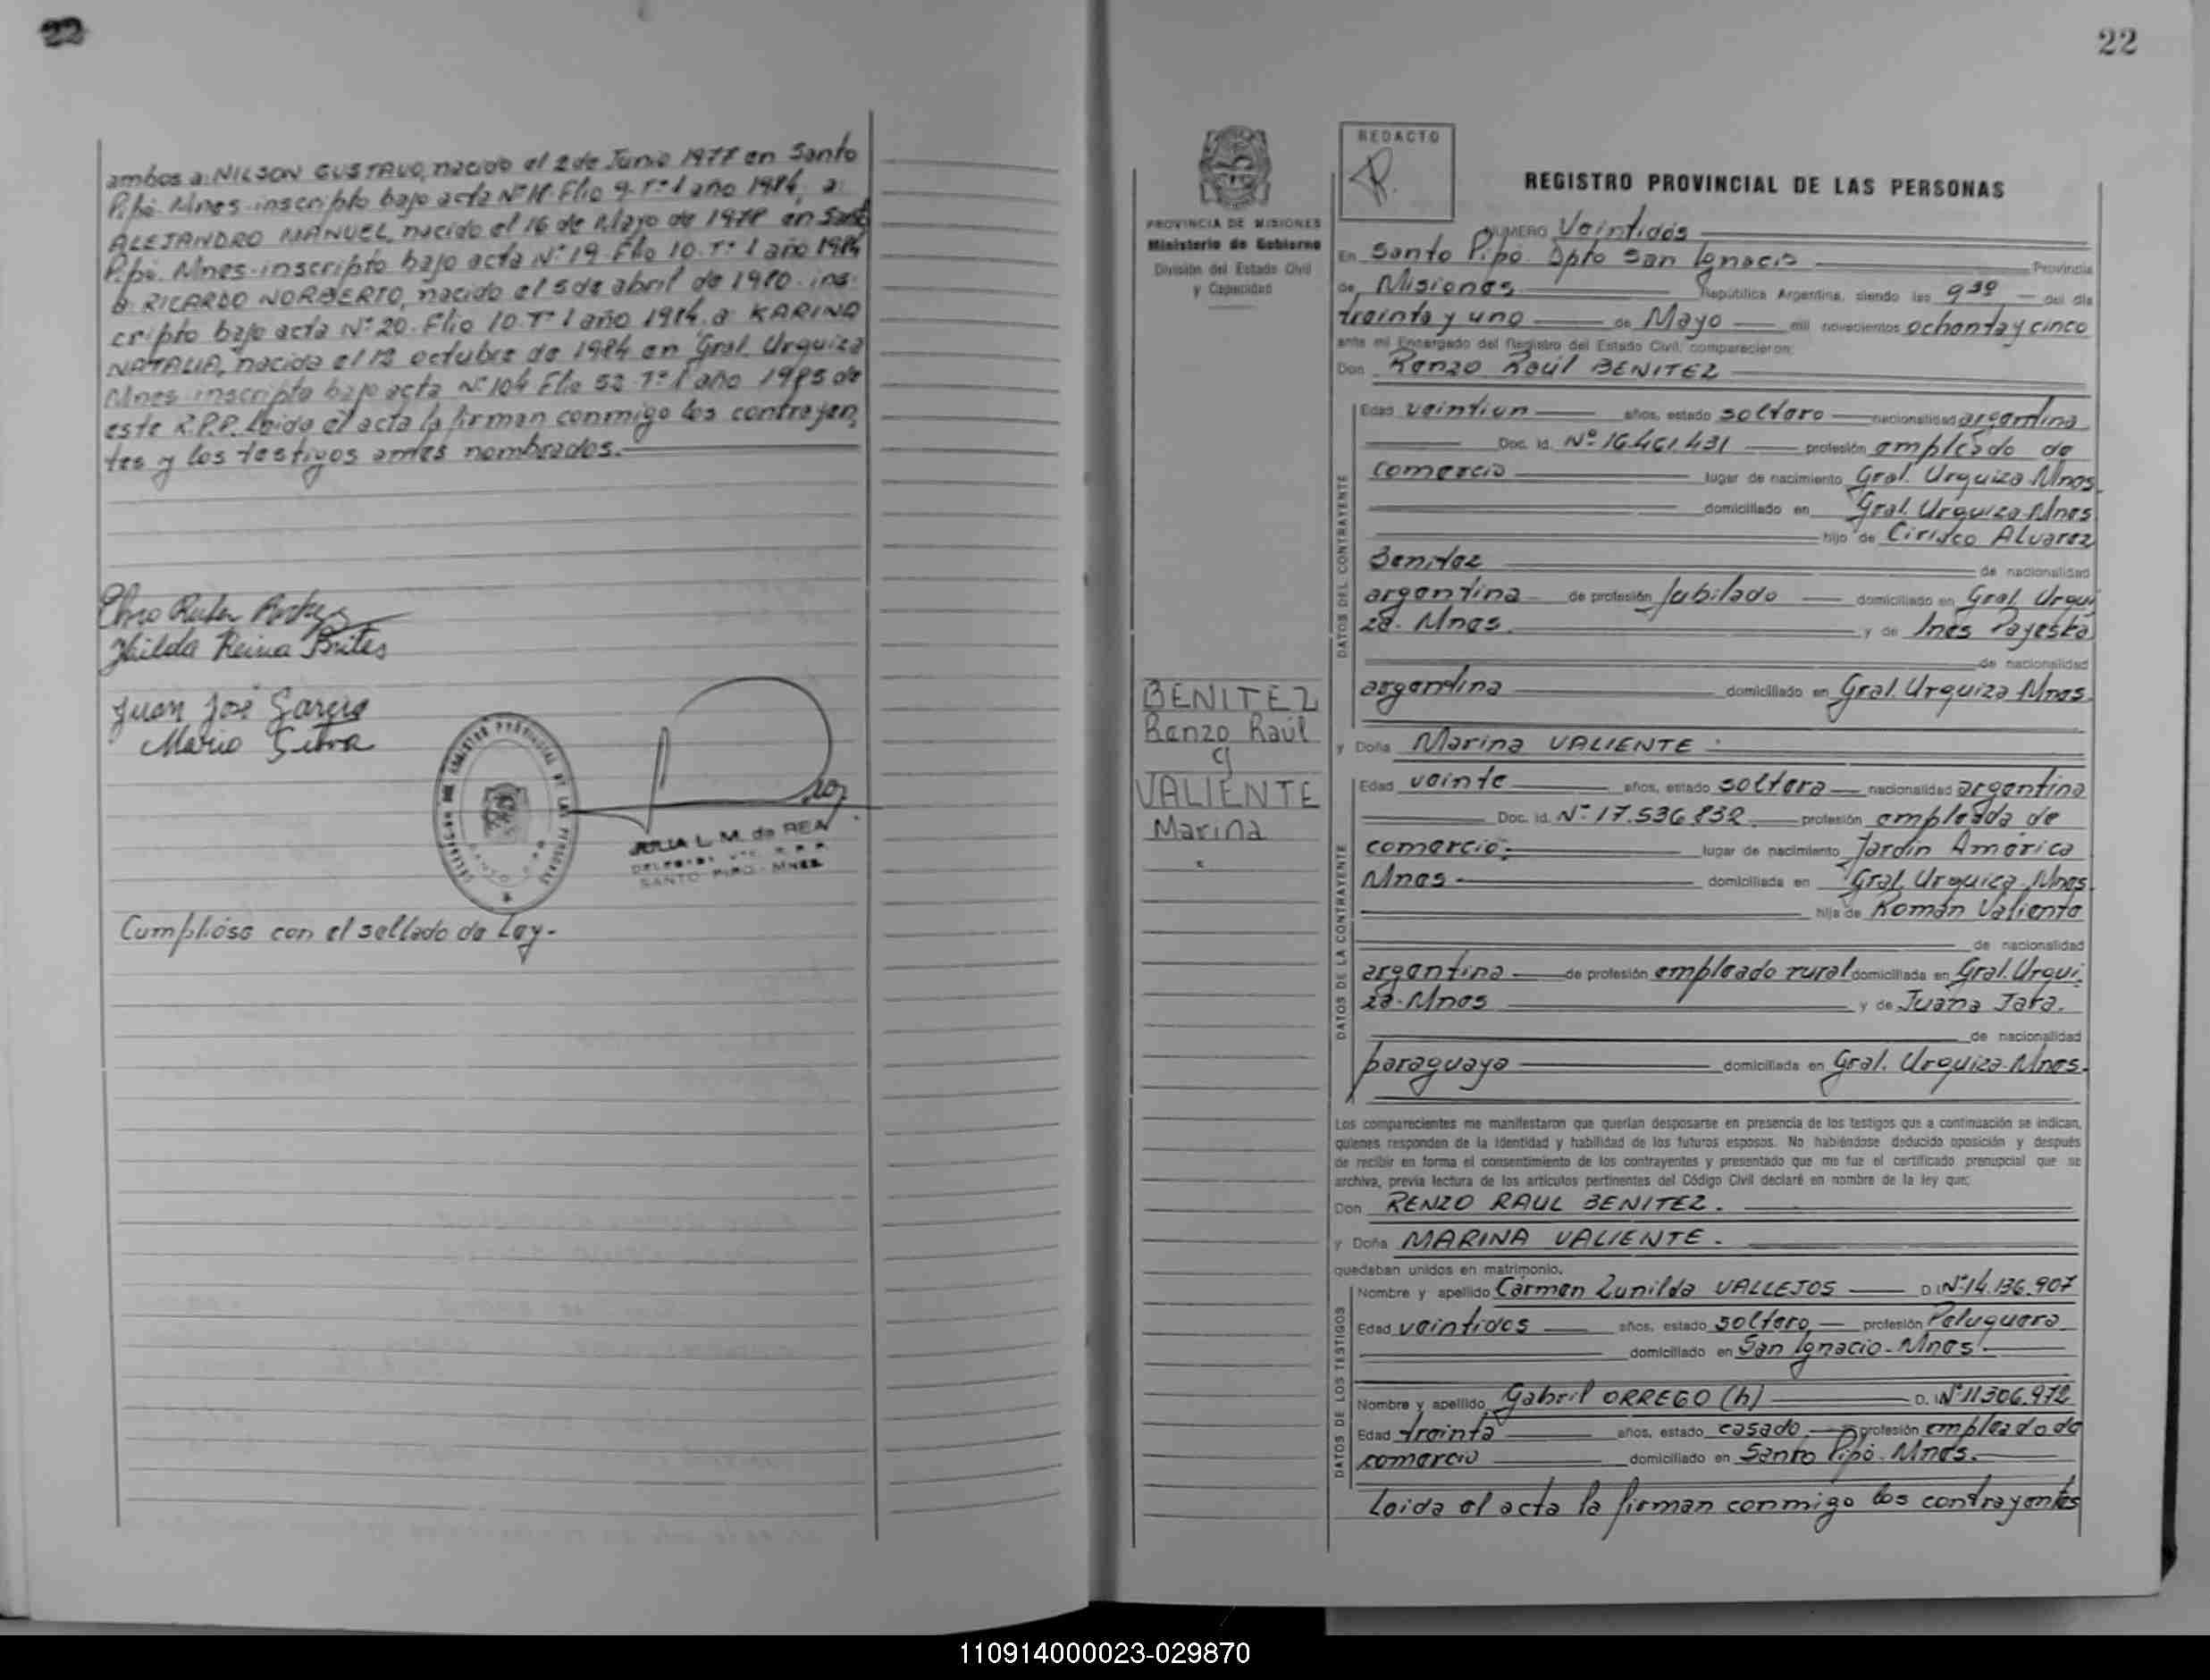 22
ambos a: NILSON GUSTAVO, nacido el 2 de Junio 1977 en Santo
Pipó. Mnes inscripto bajo acta Nº 18. Flio 9. Tº 1 año 1984, a:
ALEJANDRO MANUEL, nacido el 16 de Mayo de 1978 en Santo
Pipó. Mnes. inscripto bajo acta Nº 19 Flio 10. Tº 1 año 1984
a: RICARDO NORBERTO, nacido el 5 de abril de 1980. ins-
cripto bajo acta Nº 20. Flio 10. Tº 1 año 1984. a: KARINA
NATALIA, nacida el 12 octubre de 1984 en Gral. Urquiza
Mnes inscripta bajo acta Nº 104 Flio 52 Tº 1 año 1985 de
este R.P.P. Leida el acta la firman conmigo los contrayen
tes y los testigos antes nombrados.
Hilda Reina Brites
Juan José Garcia
Mario Silva
JULIA L. M. de REA
SANTO PIPO - MNES
Cumplióse con el sellado de Ley-
22
PROVINCIA DE MISIONES
Ministerio de Gobierno
División del Estado Civil
y Capacidad
BENITEZ
Renzo Raúl
y
VALIENTE
Marina
REDACTO
REGISTRO PROVINCIAL DE LAS PERSONAS
NUMERO Veintidós
En Santo Pipó. Dpto San Ignacio Provincia
de Misiones República Argentina, siendo las 9 30 del día
treinta y uno de Mayo mil novecientos ochenta y cinco
ante mi Encargado del Registro del Estado Civil, comparecieron:
Don Renzo Raúl BENITEZ
DATOS DEL CONTRAYENTE
Edad veintiun años, estado soltero nacionalidad argentina
Doc. Id. Nº 16.461.431 profesión empleado de
comercio lugar de nacimiento Gral. Urquiza Mnes
domiciliado en Gral. Urquiza-Mnes.
hijo de Ciriaco Alvarez
Benitez de nacionalidad
argentina de profesión Jubilado domiciliado en Gral. Urqui
za. Mnes. y de Inés Payeska
de nacionalidad
argentina domiciliado en Gral. Urquiza Mnes.
y Doña Marina VALIENTE
DATOS DE LA CONTRAYENTE
Edad veinte años, estado soltera nacionalidad argentina
Doc. Id. Nº 17.536.832 profesión empleada de
comercio; lugar de nacimiento Jardin América
Mnes - domiciliada en Gral. Urquiza. Mnes.
hija de Román Valiente
de nacionalidad
argentina de profesión empleado rural domiciliada en Gral. Urqui.
za-Mnes y de Juana Jara.
de nacionalidad
paraguaya domiciliada en Gral. Urquiza-Mnes.
Los comparecientes me manifestaron que querían desposarse en presencia de los testigos que a continuación se indican,
quienes responden de la identidad y habilidad de los futuros esposos. No habiéndose deducido oposición y después
de recibir en forma el consentimiento de los contrayentes y presentado que me fue el certificado prenupcial que se
archiva, previa lectura de los artículos pertinentes del Código Civil declaré en nombre de la ley que:
Don RENZO RAUL BENITEZ.
y Doña MARINA VALIENTE.
quedaban unidos en matrimonio.
DATOS DE LOS TESTIGOS
Nombre y apellido Carmen Zunilda VALLEJOS D.I. Nº 14.136.907
Edad veintidos años, estado soltero profesión Peluquera
domiciliado en San Ignacio-Mnes.
Nombre y apellido Gabril ORREGO (h) D.I. Nº 11306.972
Edad treinta años, estado casado profesión empleado de
comercio domiciliado en Santo Pipó. Mnes.
Leida el acta la firman conmigo los contrayentes
110914000023-029870